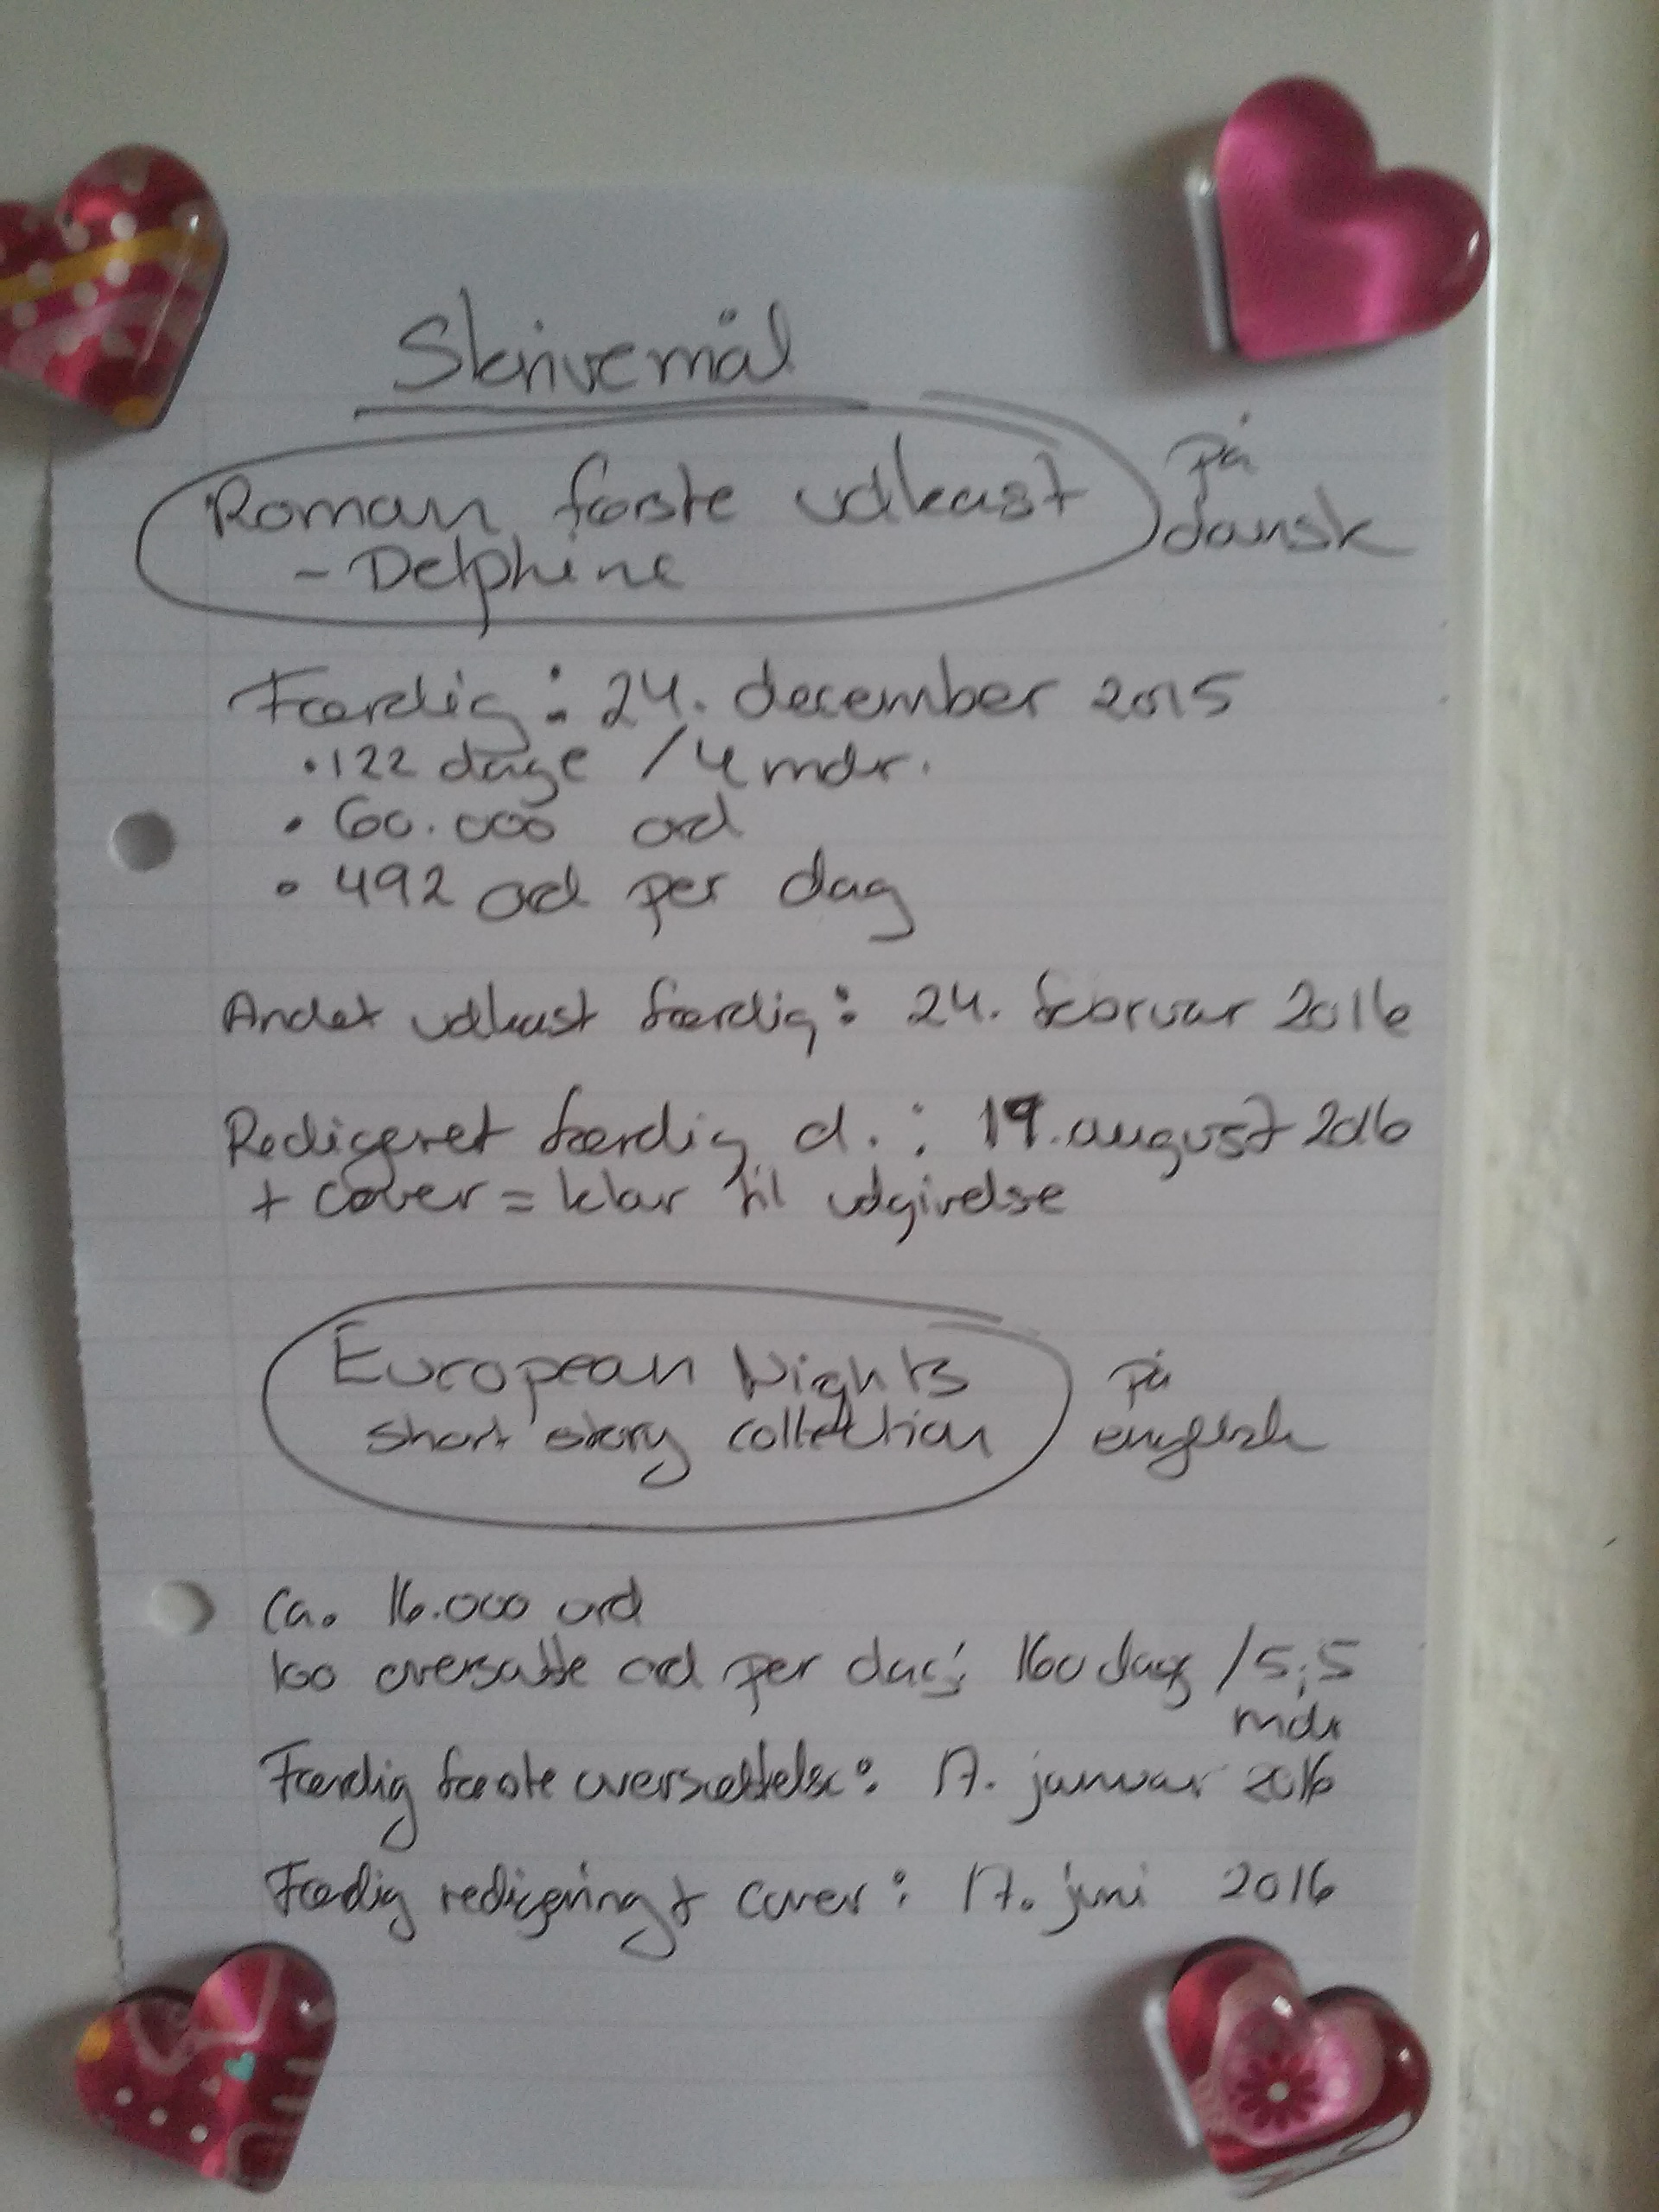 Skrivemål
Roman første udkast
- Delphine
på
dansk
Færdig: 24. december 2015
• 122 dage / 4 mdr.
• 60.000 ord
• 492 ord per dag
Andet udkast færdig: 24. februar 2016
Redigeret færdig d.: 19. august 2016
+ cover = klar til udgivelse
European Nights
short story collection
på
englsk
Ca. 16.000 ord
100 oversatte ord per dag: 160 dage / 5,5
mdr
Færdig første oversættelse: 17. januar 2016
Færdig redigering + cover: 17. juni 2016